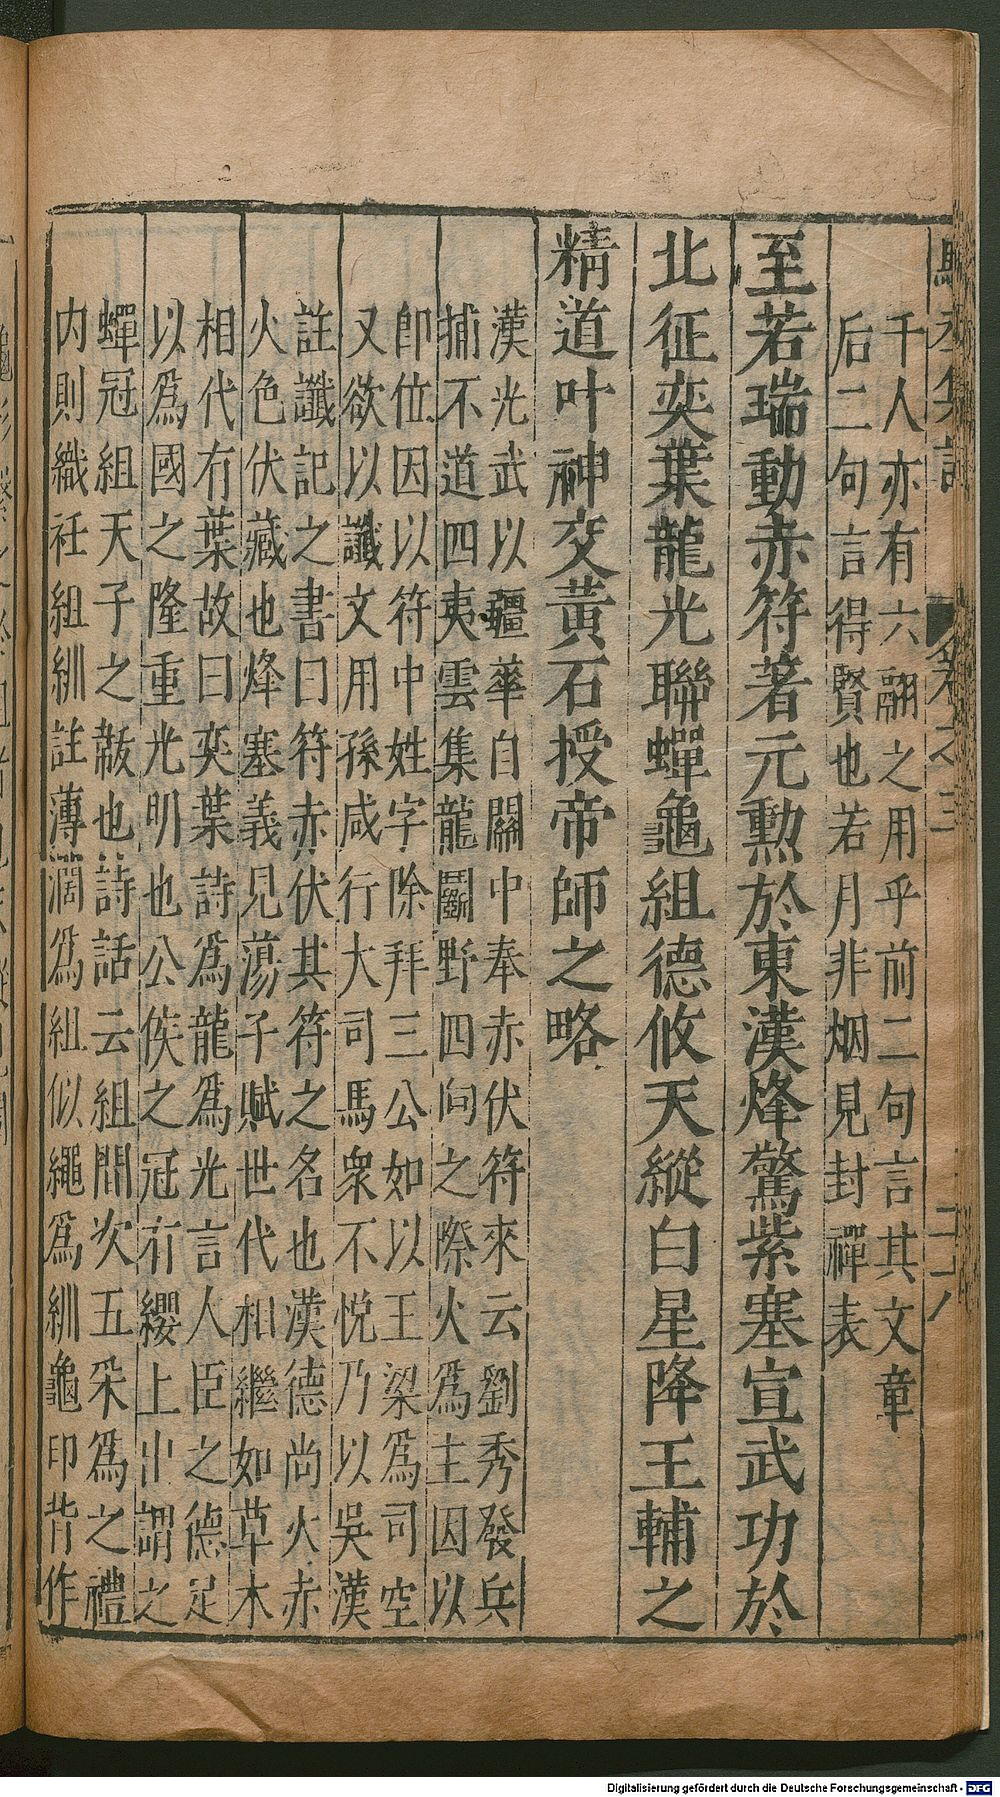 千人亦有六翮之用乎前二句言其文章
后二句言得賢也若月非烟見封禪表
至若瑞動赤符著元勳於東漢烽驚紫塞宣武功於
北征奕葉龍光聯蟬龜組德攸天縱白星降王輔之
精道叶神交黃石授帝師之略
漢光武以疆華自關中奉赤伏符來云劉秀發兵
捕不道四夷雲集龍鬬野四向之際火爲主因以
卽位因以符中姓字除拜三公如以王梁爲司空
又欲以讖文用孫咸行大司馬衆不悅乃以吳漢
註讖記之書曰符赤伏其符之名也漢德尚火赤
火色伏藏也烽塞義見蕩子賦世代相繼如草木
相代有葉故曰奕葉詩爲龍爲光言人臣之德足
以爲國之隆重光明也公侯之冠有纓上出謂之
蟬冠組天子之黻也詩話云組間次五采爲之禮
内則織紝組紃註薄濶爲組似繩爲紃龜印背作
Digitalisierung gefördert durch die Deutsche Forschungsgemeinschaft - DFG